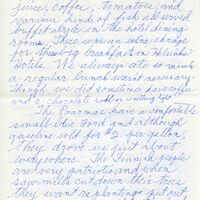 juices, coffee, tomatoes and
various kinds of fish all served
buffet style in the hotel dining
rooms. There was an extra charge
for this big breakfast in Helsinki
Hotels. We always ate so much
a regular lunch wasn't necessary
though we did sometimes have coffee
and a chocolate roll or
The Paacmas have a comfortable
small blue Ford and although
gasoline sold for $2 per gallon
they drove us just about
everywhere. The Finnish people
are very patriotic and when
saw mills cut down their trees
they want re-plantings put out